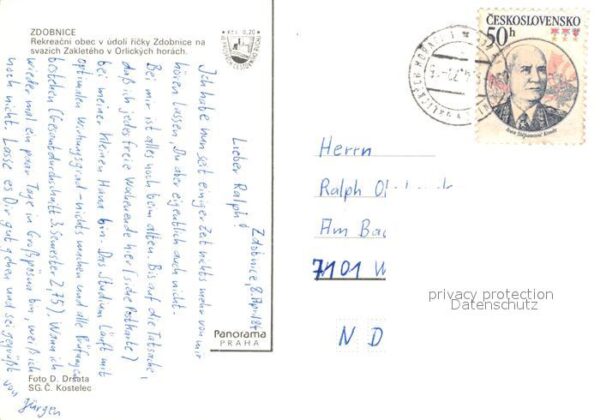 ZDOBNICE
Rekreační obec v údolí říčky Zdobnice na
svazích Zakletého v Orlických horách.
Kčs 0,20
Zdobnice, 8. Apr. 84
Lieber Ralph!
Ich habe nun seit einiger Zeit nichts mehr von mir
hören lassen, Du aber eigentlich auch nicht.
Bei mir ist alles noch beim alten. Bis auf die Tatsache,
daß ich jedes freie Wochenende hier (siehe Postkarte)
bei meiner kleinen Hana bin. Das Studium läuft mit
optimalen Wirkungsgrad - nichts machen und alle Prüfungen
bestehen (Gesamtdurchschnitt 3. Semester 2,75). Wann ich
wieder mal ein paar Tage in Großpösna bin, weiß ich
noch nicht. Lasse es Dir gut gehen und sei gegrüßt von
Jürgen
Foto D. Dršata
SG. Č. Kostelec
Panorama
PRAHA
ČESKOSLOVENSKO
50h
Herrn
Ralph
Am
7101 W
privacy protection
Datenschutz